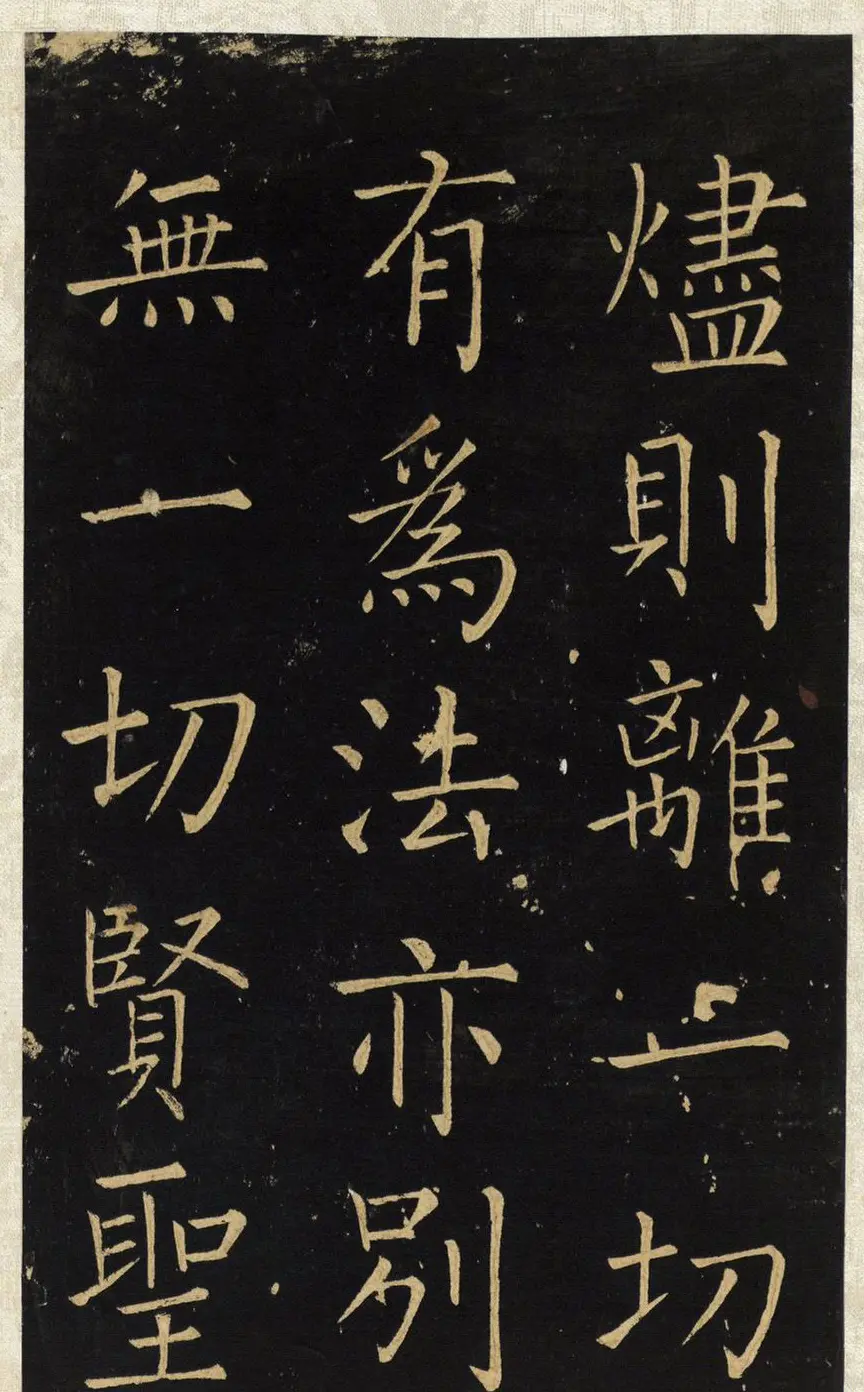 燼則離一切
有為法亦別
無一切賢聖